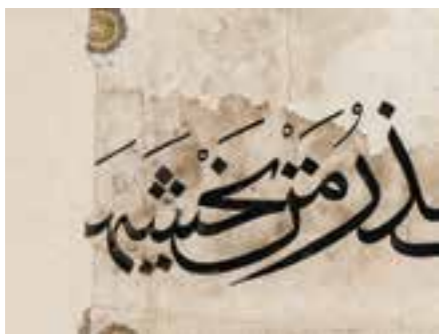 ـذرُ مَنْ يَخْشَيهَـ